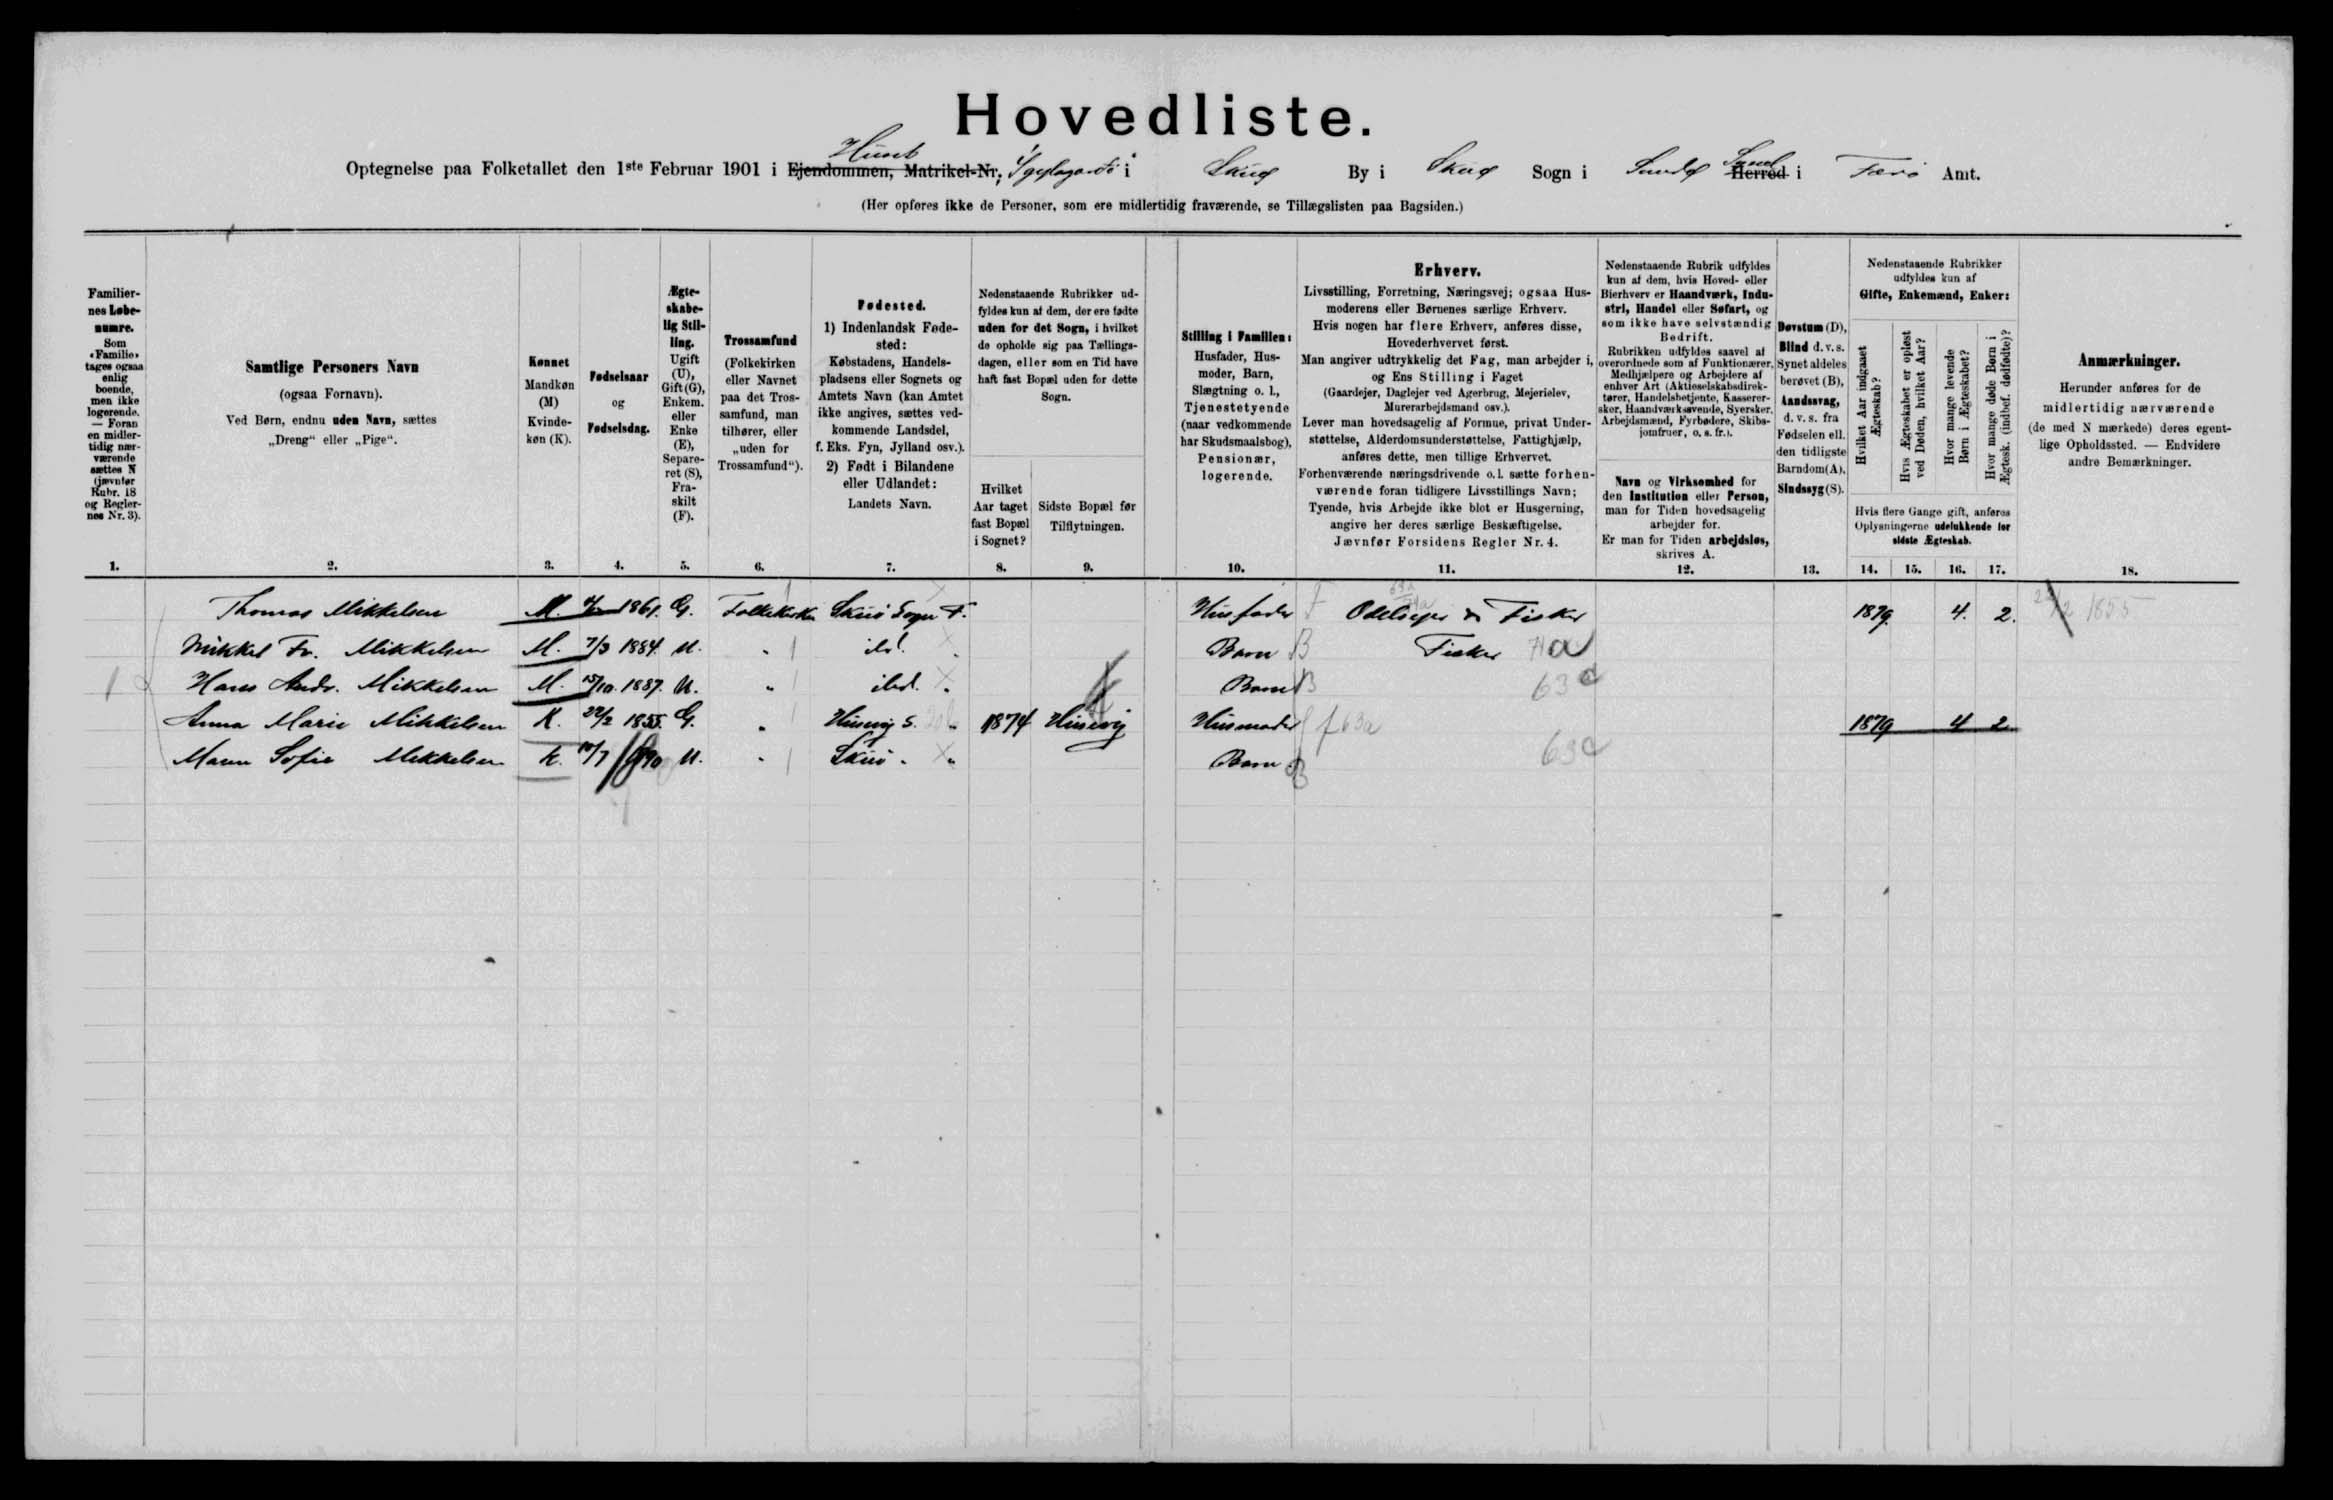 Hovedliste.
Huset
Optegnelse paa Folketallet den 1ste Februar 1901 i Ejendommen, Matrikel-Nr. i Skuø By i Skuø Sogn i Sandø Syssel Herred i Færø Amt.
(Her opføres ikke de Personer, som ere midlertidig fraværende, se Tillægslisten paa Bagsiden.)
Familiernes Løbenumre.
Som «Familie» tages ogsaa enlig boende, men ikke logerende. — Foran en midlertidig nærværende sættes N (jævnfør Rubr. 18 og Reglernes Nr. 3).
1.
Samtlige Personers Navn
(ogsaa Fornavn).
Ved Børn, endnu uden Navn, sættes
„Dreng“ eller „Pige“.
2.
Kønnet
Mandkøn (M)
Kvindekøn (K).
3.
Fødselsaar
og
Fødselsdag.
4.
Ægteskabelig Stilling.
Ugift (U), Gift (G), Enkem. eller Enke (E), Separeret (S), Fraskilt (F).
5.
Trossamfund
(Folkekirken eller Navnet paa det Trossamfund, man tilhører, eller „uden for Trossamfund“).
6.
Fødested.
1) Indenlandsk Fødested:
Købstadens, Handelspladsens eller Sognets og Amtets Navn (kan Amtet ikke angives, sættes vedkommende Landsdel, f. Eks. Fyn, Jylland osv.).
2) Født i Bilandene eller Udlandet:
Landets Navn.
7.
Nedenstaaende Rubrikker udfyldes kun af dem, der ere fødte uden for det Sogn, i hvilket de opholde sig paa Tællingsdagen, eller som en Tid have haft fast Bopæl uden for dette Sogn.
Hvilket Aar taget fast Bopæl i Sognet?
8.
Sidste Bopæl før Tilflytningen.
9.
Stilling i Familien:
Husfader, Husmoder, Barn, Slægtning o. l., Tjenestetyende (naar vedkommende har Skudsmaalsbog), Pensionær, logerende.
10.
Erhverv.
Livsstilling, Forretning, Næringsvej; ogsaa Husmoderens eller Børnenes særlige Erhverv.
Hvis nogen har flere Erhverv, anføres disse, Hovederhvervet først.
Man angiver udtrykkelig det Fag, man arbejder i, og Ens Stilling i Faget
(Gaardejer, Daglejer ved Agerbrug, Mejerielev, Murerarbejdsmand osv.).
Lever man hovedsagelig af Formue, privat Understøttelse, Alderdomsunderstøttelse, Fattighjælp, anføres dette, men tillige Erhvervet.
Forhenværende næringsdrivende o. l. sætte forhenværende foran tidligere Livsstillings Navn;
Tyende, hvis Arbejde ikke blot er Husgerning, angive her deres særlige Beskæftigelse.
Jævnfør Forsidens Regler Nr. 4.
11.
Nedenstaaende Rubrik udfyldes kun af dem, hvis Hoved- eller Bierhverv er Haandværk, Industri, Handel eller Søfart, og som ikke have selvstændig Bedrift.
Rubrikken udfyldes saavel af overordnede som af Funktionærer, Medhjælpere og Arbejdere af enhver Art (Aktieselskabsdirektører, Handelsbetjente, Kasserersker, Haandværkssvende, Syersker, Arbejdsmænd, Fyrbødere, Skibsjomfruer, o. s. fr.).
Navn og Virksomhed for den Institution eller Person, man for Tiden hovedsagelig arbejder for.
Er man for Tiden arbejdsløs, skrives A.
12.
Døvstum (D), Blind d. v. s. Synet aldeles berøvet (B), Aandssvag, d. v. s. fra Fødselen ell. den tidligste Barndom (A), Sindssyg (S).
13.
Nedenstaaende Rubrikker udfyldes kun af
Gifte, Enkemænd, Enker:
Hvilket Aar indgaaet Ægteskab?
Hvis Ægteskabet er opløst ved Døden, hvilket Aar?
Hvor mange levende Børn i Ægteskabet?
Hvor mange døde Børn i Ægtesk. (indbef. dødfødte)?
Hvis flere Gange gift, anføres Oplysningerne udelukkende for sidste Ægteskab.
14. 15. 16. 17.
Anmærkninger.
Herunder anføres for de midlertidig nærværende (de med N mærkede) deres egentlige Opholdssted. — Endvidere andre Bemærkninger.
18.
Thomas Mikkelsen M. 1861. G. Folkekirken Skuø Sogn F. Husfader F Odelsejer & Fisker 1879. 4. 2. 22/2 1855
Mikkel Fr. Mikkelsen M. 7/3 1884. U. " ibd. " Barn B Fisker 71a
1 Hans Andr. Mikkelsen M. 15/10 1887. U. " ibd. " Barn B 63c
Anna Marie Mikkelsen K. 22/2 1855. G. " Husevig S. " 1874 Husevig Husmoder f 63a 1879 4 2
Maren Sofie Mikkelsen K. 1890 U. " Skuø " " Barn B 63c